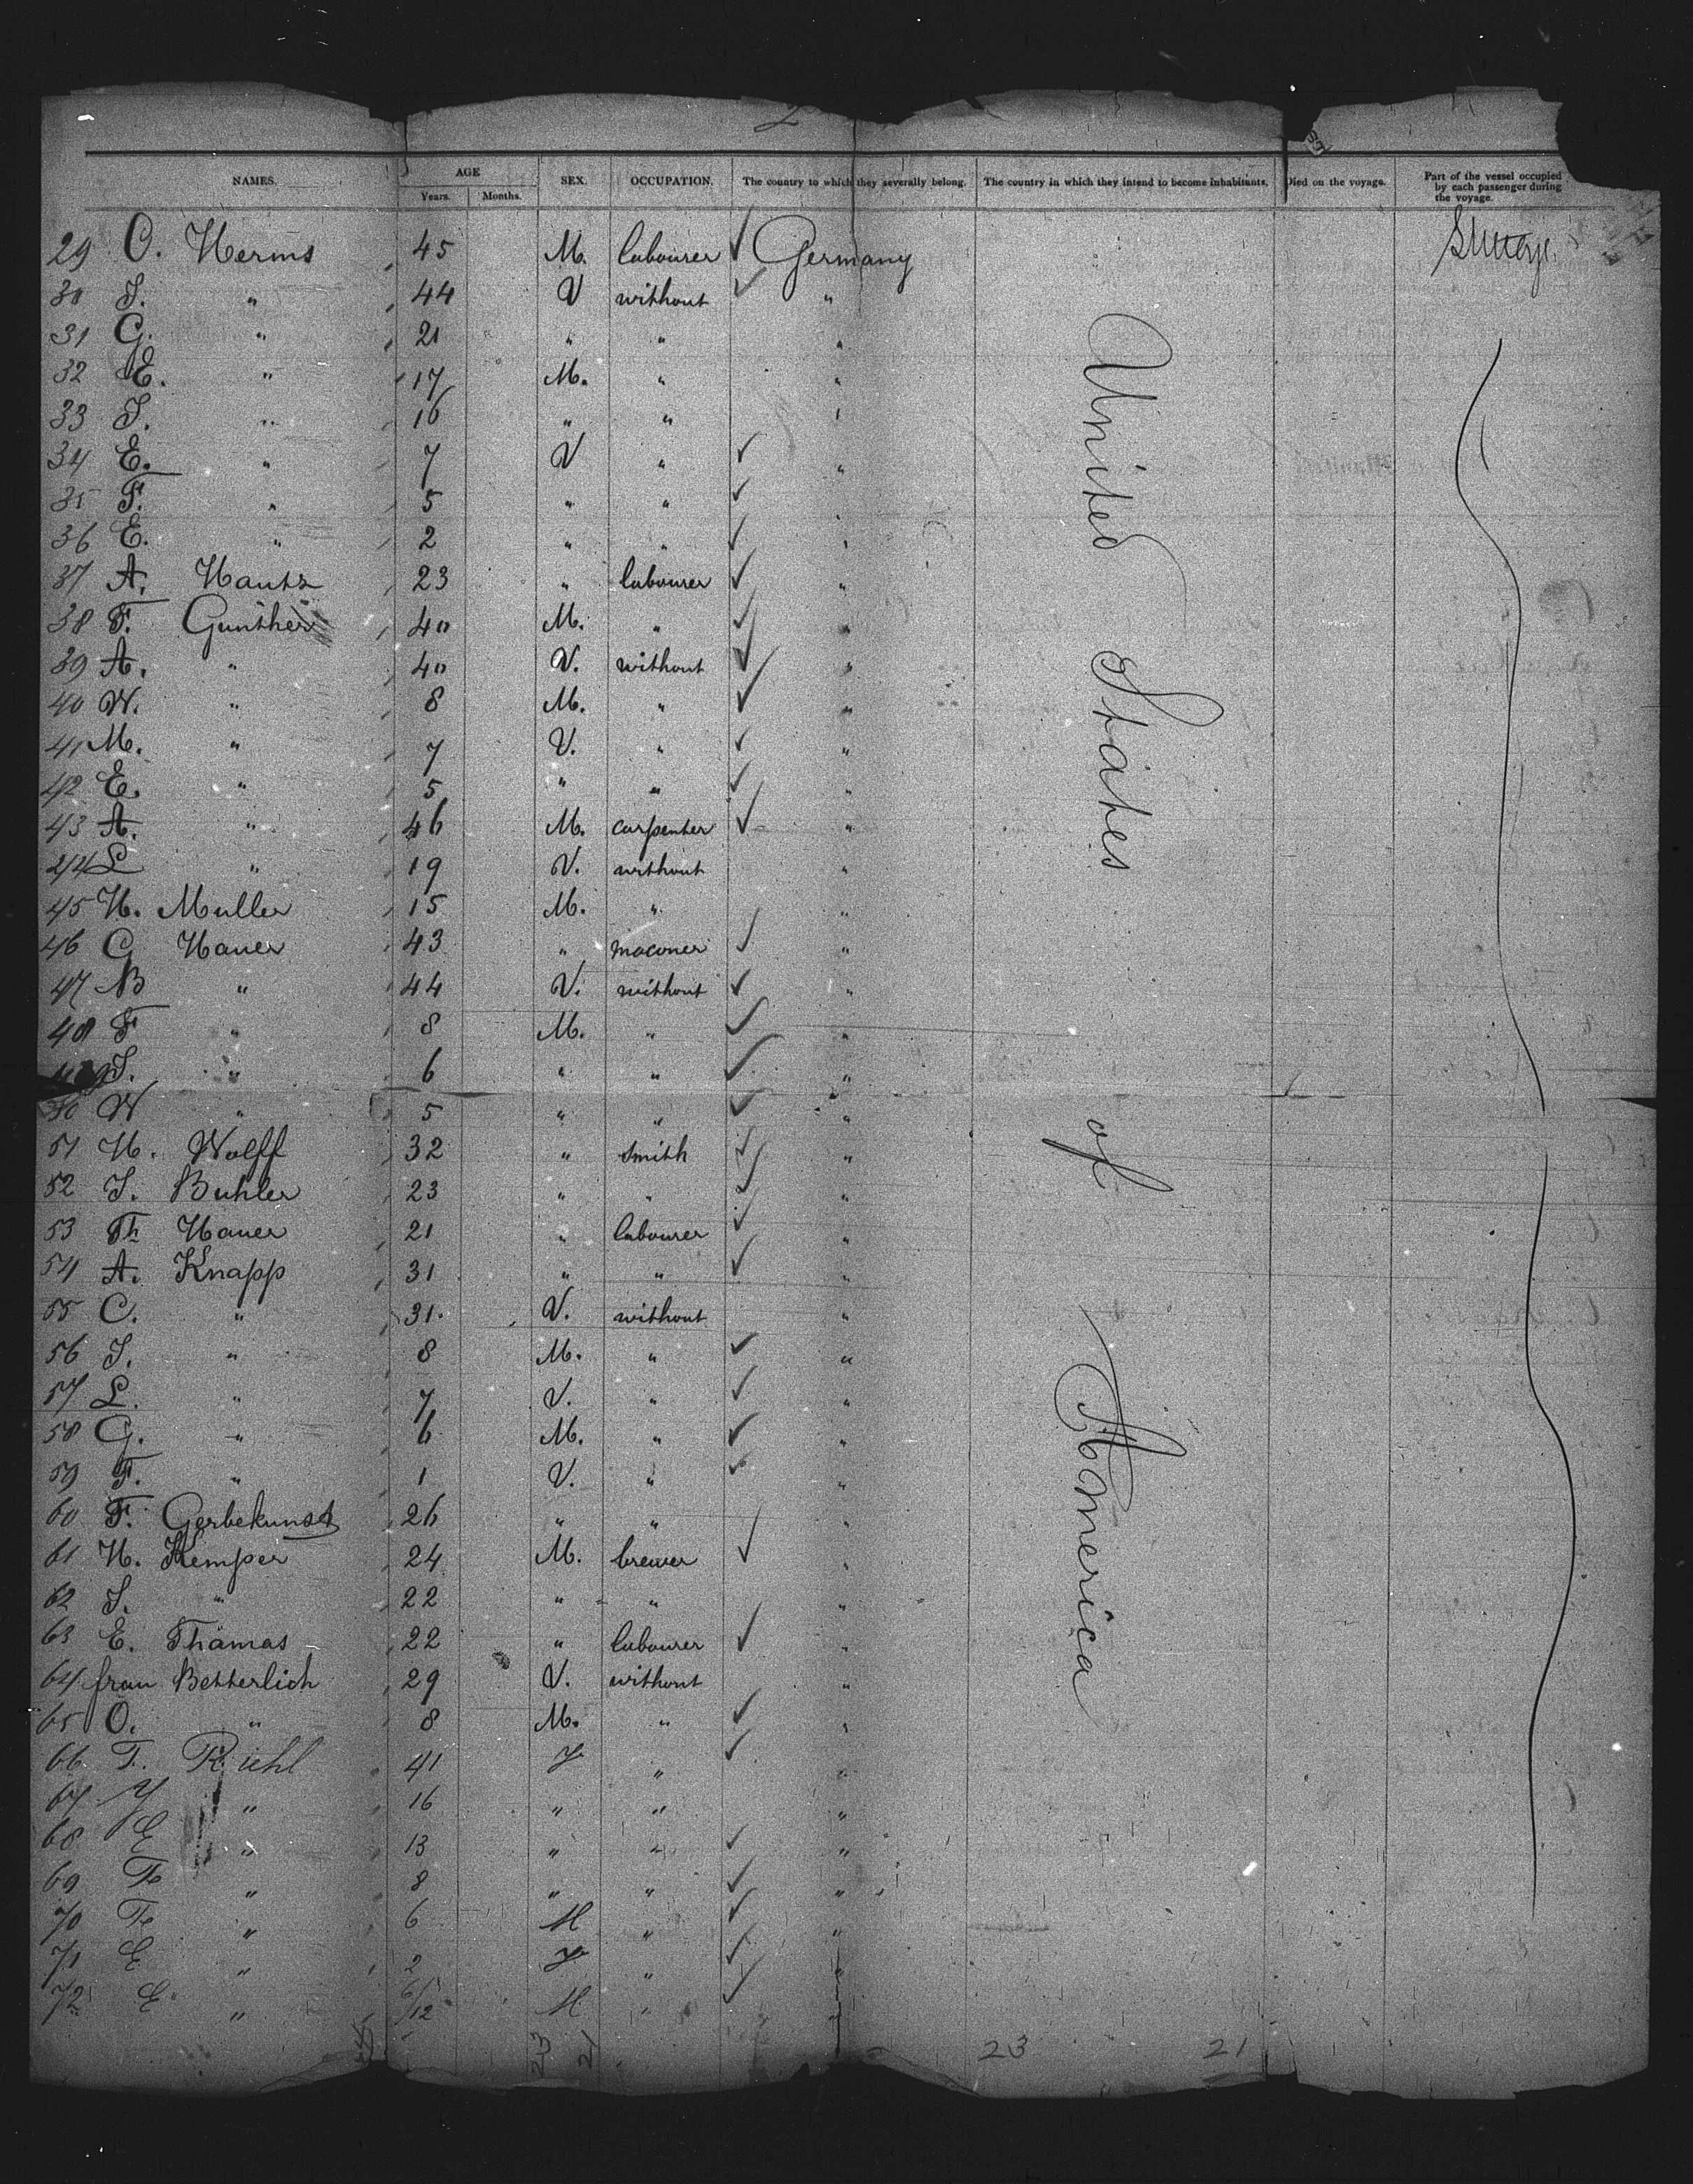 2
NAMES. AGE Years. Months. SEX. OCCUPATION. The country to which they severally belong. The country in which they intend to become inhabitants. Died on the voyage. Part of the vessel occupied by each passenger during the voyage.
29 O. Herms 45 M. labourer ✓ Germany
30 J. " 44 V without ✓ "
31 G. " 21 " " "
32 E. " 17 M. " "
33 J. " 16 " " "
34 E. " 7 V " ✓ "
35 F. " 5 " " ✓ "
36 E. " 2 " " ✓ "
37 A. Hantz 23 " labourer ✓ "
38 F. Gunther 40 M. " ✓ "
39 A. " 40 V. without ✓ "
40 W. " 8 M. " ✓ "
41 M. " 7 V. " ✓ "
42 E. " 5 " " ✓ "
43 A. " 46 M. carpenter ✓ "
44 L " 19 V. without "
45 H. Muller 15 M. " "
46 G Hauer 43 " maconer ✓ "
47 B " 44 V. without ✓ "
48 F " 8 M. " ✓ "
49 J. " 6 " " ✓ "
50 W " 5 " " ✓ "
51 H. Wolff 32 " smith ✓ "
52 J. Buhler 23 " " ✓ "
53 Th Hauer 21 " labourer ✓ "
54 A. Knapp 31 " " ✓ "
55 C. " 31. V. without "
56 J. " 8 M. " ✓ "
57 L. " 7 V. " ✓ "
58 G. " 6 M. " ✓ "
59 F. " 1 V. " ✓ "
60 F. Gerbekunst 26 " " "
61 H. Kemper 24 M. brewer ✓ "
62 J. " 22 " " "
63 E. Thämas 22 " labourer ✓ "
64 frau Betterlich 29 V. without "
65 O. " 8 M. " ✓ "
66 F. Riehl 41 F " ✓ "
67 " 16 " " "
68 E " 13 " " ✓ "
69 Fe " 8 " " ✓ "
70 Fe " 6 M " ✓ "
71 E " 2 F " ✓ "
72 E " 6/12 M " ✓ "
United States of America
23 21 23 21